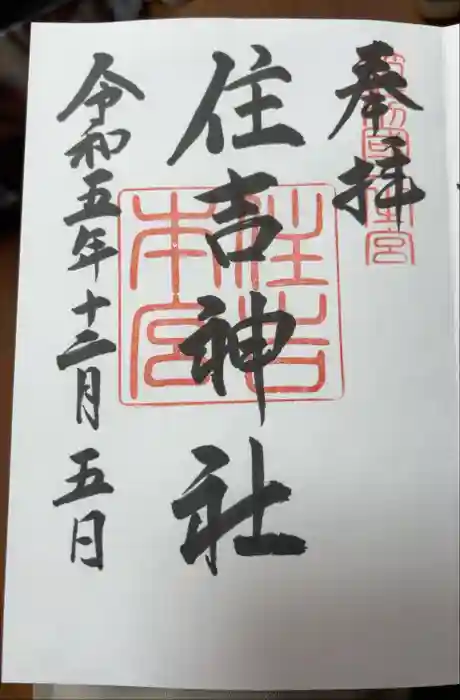 奉拝
住吉神社
住吉本宮
令和五年十二月五日